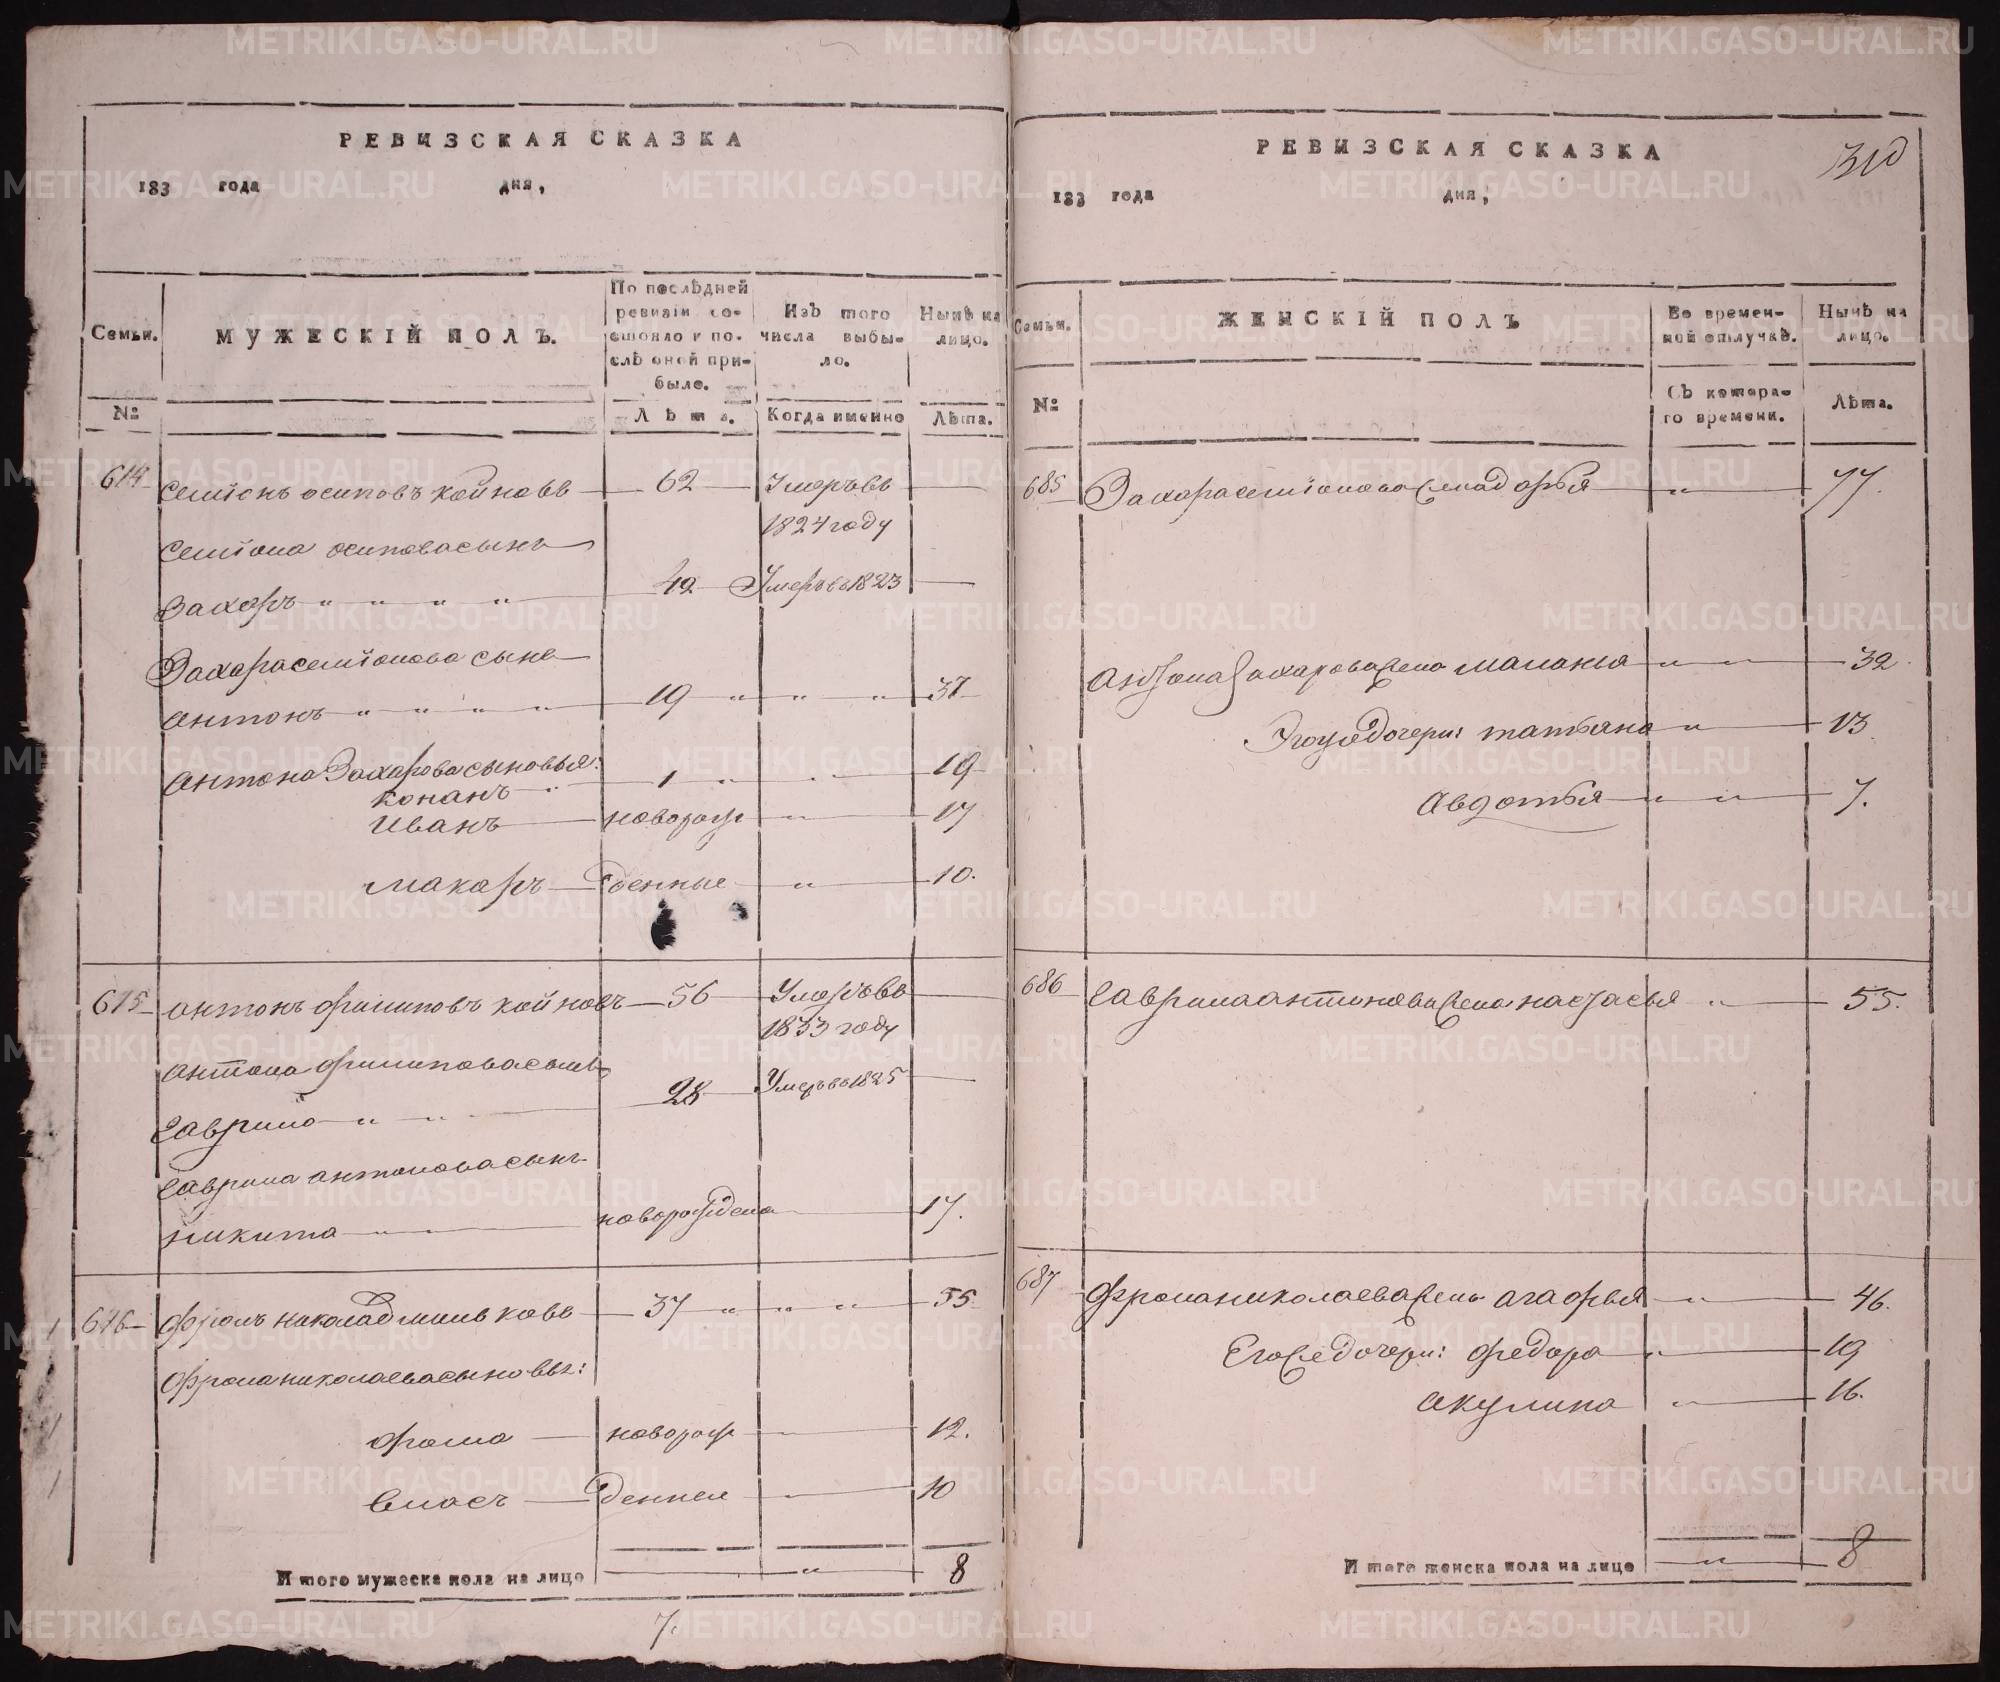 РЕВИЗСКАЯ СКАЗКА
183 года дня,
Семьи.
МУЖЕСКІЙ ПОЛЪ.
По послѣдней
ревизіи со-
стояло и по-
слѣ оной при-
было.
Изъ того
числа выбы-
ло.
Нынѣ на
лицо.
№
Лѣта.
Когда именно
Лѣта.
614 Семіонъ осиповъ койновъ 62 Умеръ въ
1824 году
Семіона осипова сынъ
Захаръ " " " " 42 Умеръ въ 1823
Захара семіонова сынъ
Антонъ " " " " 19 " " " 37
Антона Захарова сыновья:
конанъ 1 " " 19
Иванъ новорож " 17
Макаръ денные " 10.
615 Антонъ филиповъ койновъ 56 Умеръ въ
1833 году
Антона филипова сынъ
Гаврило " " 28 Умеръ въ 1825
Гаврила антонова сынъ
Никита новорожденъ 17.
616 Фролъ никола 37 " " " 55
Фрола николаева сыновья:
Фома новорож 12.
Власъ денные 10
Итого мужеска пола на лицо " 8
7.
РЕВИЗСКАЯ СКАЗКА
310
183 года дня,
Семьи.
ЖЕНСКІЙ ПОЛЪ
Во времен-
ной отлучкѣ.
Нынѣ на
лицо.
№
Съ котора-
го времени.
Лѣта.
685 Захара семіонова жена дарья " 77.
Антона Захарова жена маланья " " 32.
Его же дочери: татьяна " 13
Авдотья " " 7.
686 Гаврила антонова жена настасья " 55.
687 Фрола николаева жена агафья " 46.
Его же дочери: федора " 19
Акулина " 16.
Итого женска пола на лицо " 8
METRIKI.GASO-URAL.RU